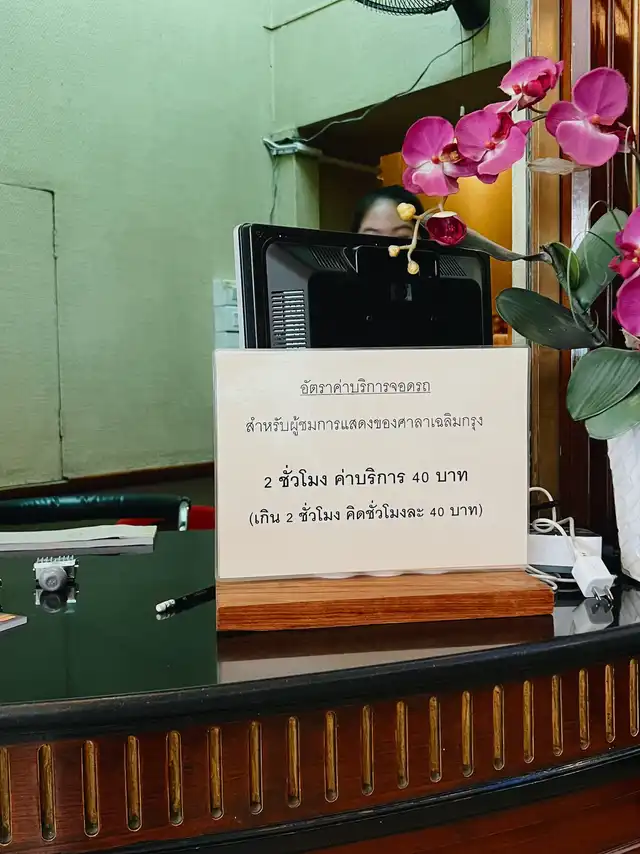 อัตราค่าบริการจอดรถ
สำหรับผู้ชมการแสดงของศาลาเฉลิมกรุง
2 ชั่วโมง ค่าบริการ 40 บาท
(เกิน 2 ชั่วโมง คิดชั่วโมงละ 40 บาท)